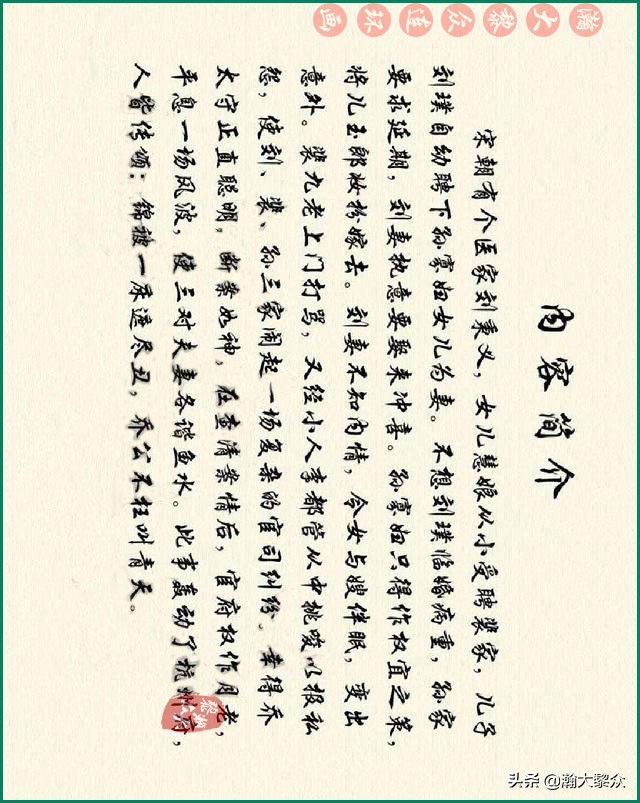 瀚大黎众连环画
内容简介
宋朝有个医家刘秉义，女儿慧娘从小受聘裴家，儿子
刘璞自幼聘下孙寡妇女儿为妻。不想刘璞临婚病重，孙家
要求延期，刘妻执意要娶来冲喜。孙寡妇只得作权宜之策，
将儿玉郎妆扮嫁去。刘妻不知内情，令女与嫂伴眠，变出
意外。裴九老上门打骂，又经小人李都管从中挑唆以报私
怨，使刘、裴、孙三家闹起一场复杂的官司纠纷，幸得乔
太守正直聪明，断案如神，在查清案情后，官府权作月老，
平息一场风波，使三对夫妻各谐鱼水。此事轰动了杭州府，
人皆传颂：锦被一床遮尽丑，乔公不枉叫青天。
头条 @瀚大黎众